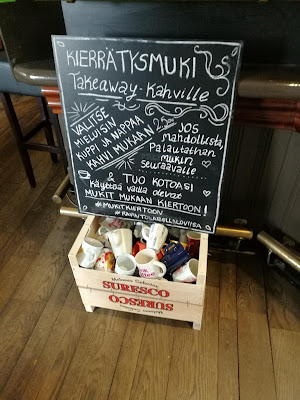 KIERRÄTYSMUKI
Takeaway-Kahville
VALITSE
MIELUISIN
KIPPI JA NAPPAA
KAHVI MUKAAN
2,50€
JOS
Mahdollista,
Palautathan
mukin
seuraavalle
& TUO KOTOASI
Käyttöä vailla olevat
MUKIT MUKAAN KIERTOON!
#MUKITKIERTOON
SURESCO
SURESCO